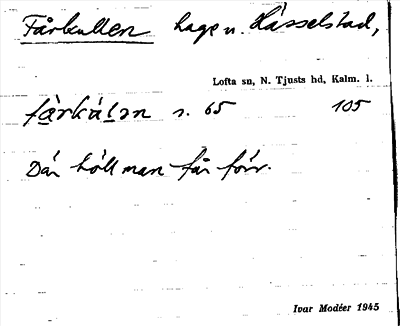 Fårkullen hage u. Hässelstad,
Lofta sn, N. Tjusts hd, Kalm. l.
fǻrkál̠ən s. 65 105
Där höll man får förr.
Ivar Modéer 1945